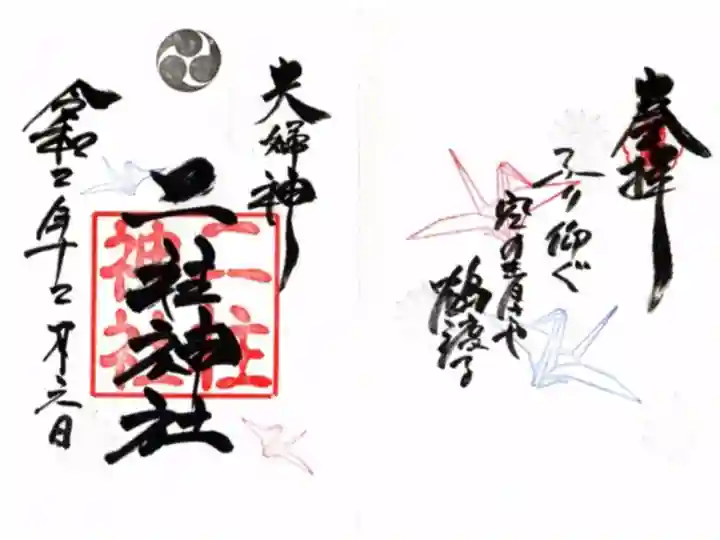 奉拝
ふり仰ぐ
空の青さや
鶴渡る
夫婦神
二柱神社
二柱神社
令和二年十二月六日